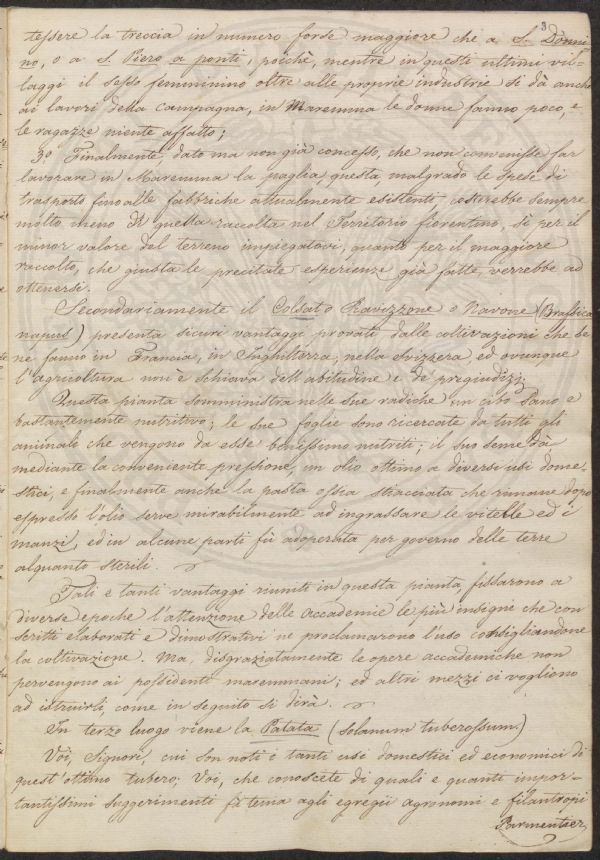 3
tessere la treccia in numero forse maggiore che a S. Donni-
no, o a S. Piero a ponti; poichè, mentre in questi ultimi vil-
laggi il sesso femminino oltre alle proprie industrie si dà anche
ai lavori della campagna, in Maremma le donne fanno poco, e
le ragazze niente affatto;
3º Finalmente, dato ma non già concesso, che non convenisse far
lavorare in Maremma la paglia, questa malgrado le spese di
trasporto fino alle fabbriche attualmente esistenti, costerebbe sempre
molto meno di quella raccolta nel Territorio fiorentino, sì per il
minor valore del terreno impiegatovi, quanto per il maggiore
raccolto, che giusta le precitate esperienze già fatte, verrebbe ad
ottenersi.
Secondariamente il Colsat o Ravizzone o Navone (Brassica
napus) presenta sicuri vantaggi provati dalle coltivazioni che se
ne fanno in Francia, in Inghilterra, nella Svizzera ed ovunque
l'agricoltura non è schiava dell'abitudine e de' pregiudizj.
Questa pianta somministra nelle sue radiche un cibo sano e
bastantemente nutritivo; le sue foglie sono ricercate da tutti gli
animali che vengono da esse benissimo nutriti; il suo seme dà
mediante la conveniente pressione, un olio ottimo a diversi usi dome-
stici, e finalmente anche la pasta ossia stiacciata che rimane dopo
espresso l'olio serve mirabilmente ad ingrassare le vitelle ed i
manzi, ed in alcune parti fù adoperata per governo delle terre
alquanto sterili.
Tali e tanti vantaggi riuniti in questa pianta, fissarono a
diverse epoche l'attenzione delle accademie le più insigne che con
scritti elaborati e dimostrativi ne proclamarono l'uso consigliandone
la coltivazione. Ma, disgraziatamente le opere accademiche non
pervengono ai possidenti maremmani; ed altri mezzi ci vogliono
ad istruirli, come in seguito si dirà.
In terzo luogo viene la Patata (solanum tuberossum)
Voi, Signori, cui son noti i tanti usi domestici ed economici di
quest'ottimo tubero; Voi, che conoscete di quali e quanti impor-
tantissimi suggerimenti fù tema agli egregii agronomi e filantropi
Parmentier